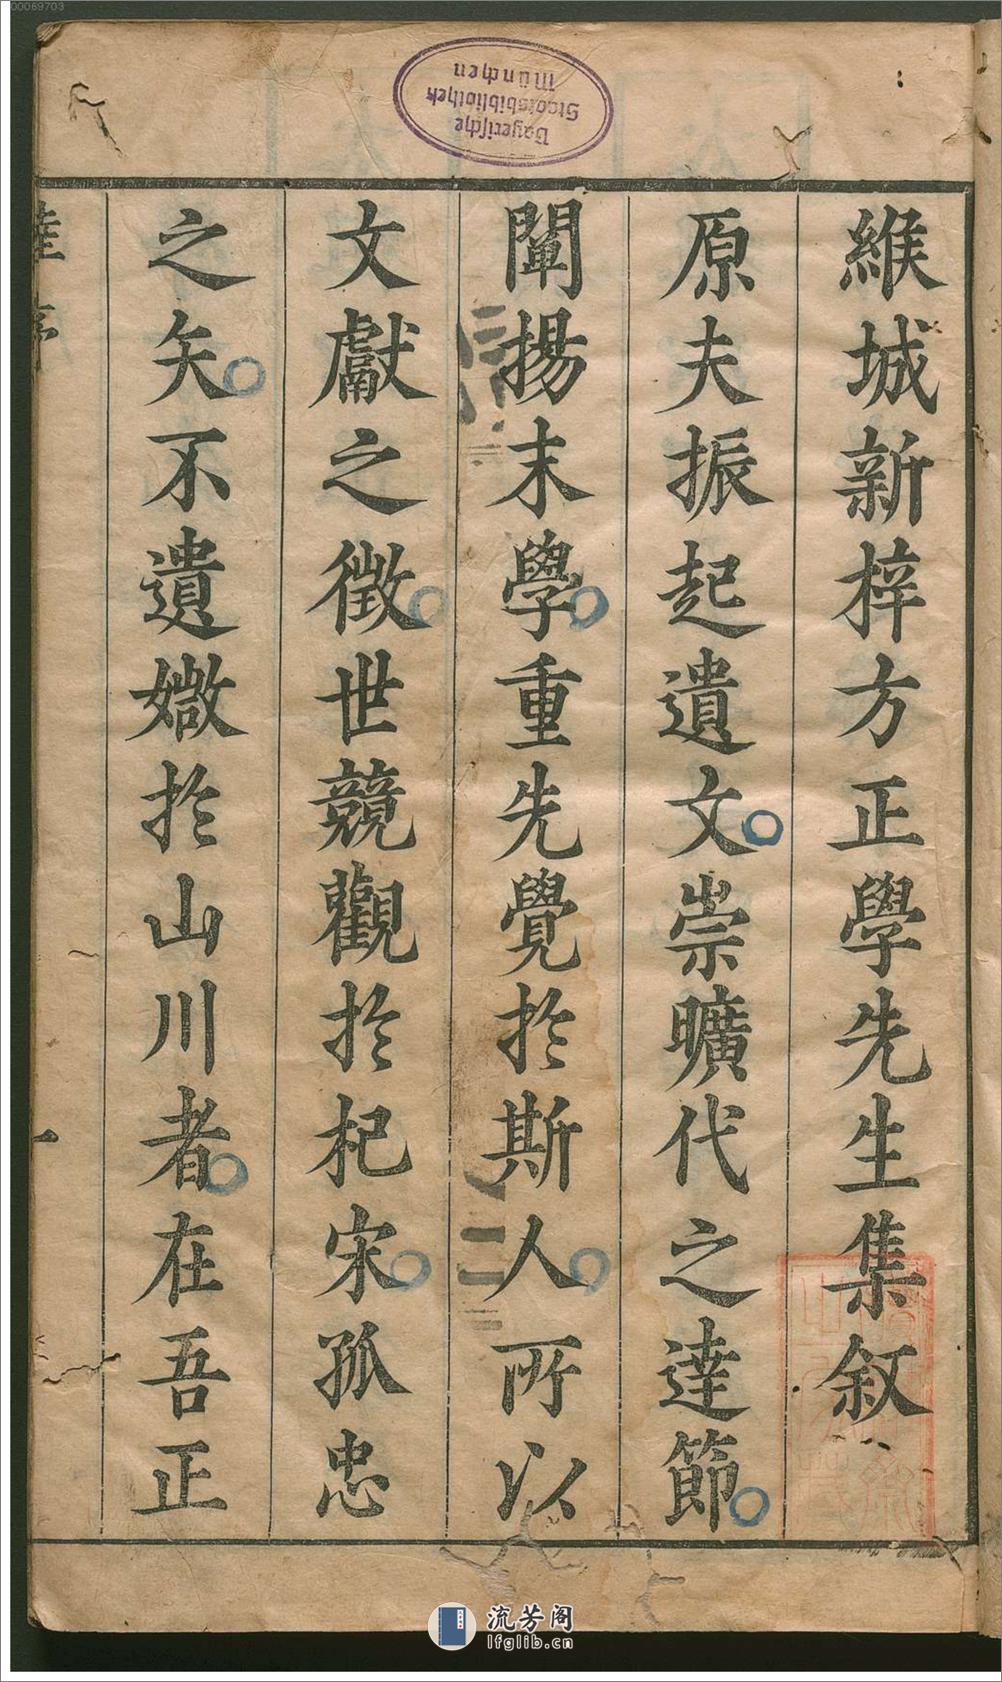 00069703
Bayerische
Staatsbibliothek
München
緱城新梓方正學先生集叙
原夫振起遺文崇曠代之達節
闡揚末學重先覺於斯人所以
文獻之徵世競觀於杞宋孤忠
之矢不遺媺於山川者在吾正
陸序
一
流芳阁
lfglib.cn